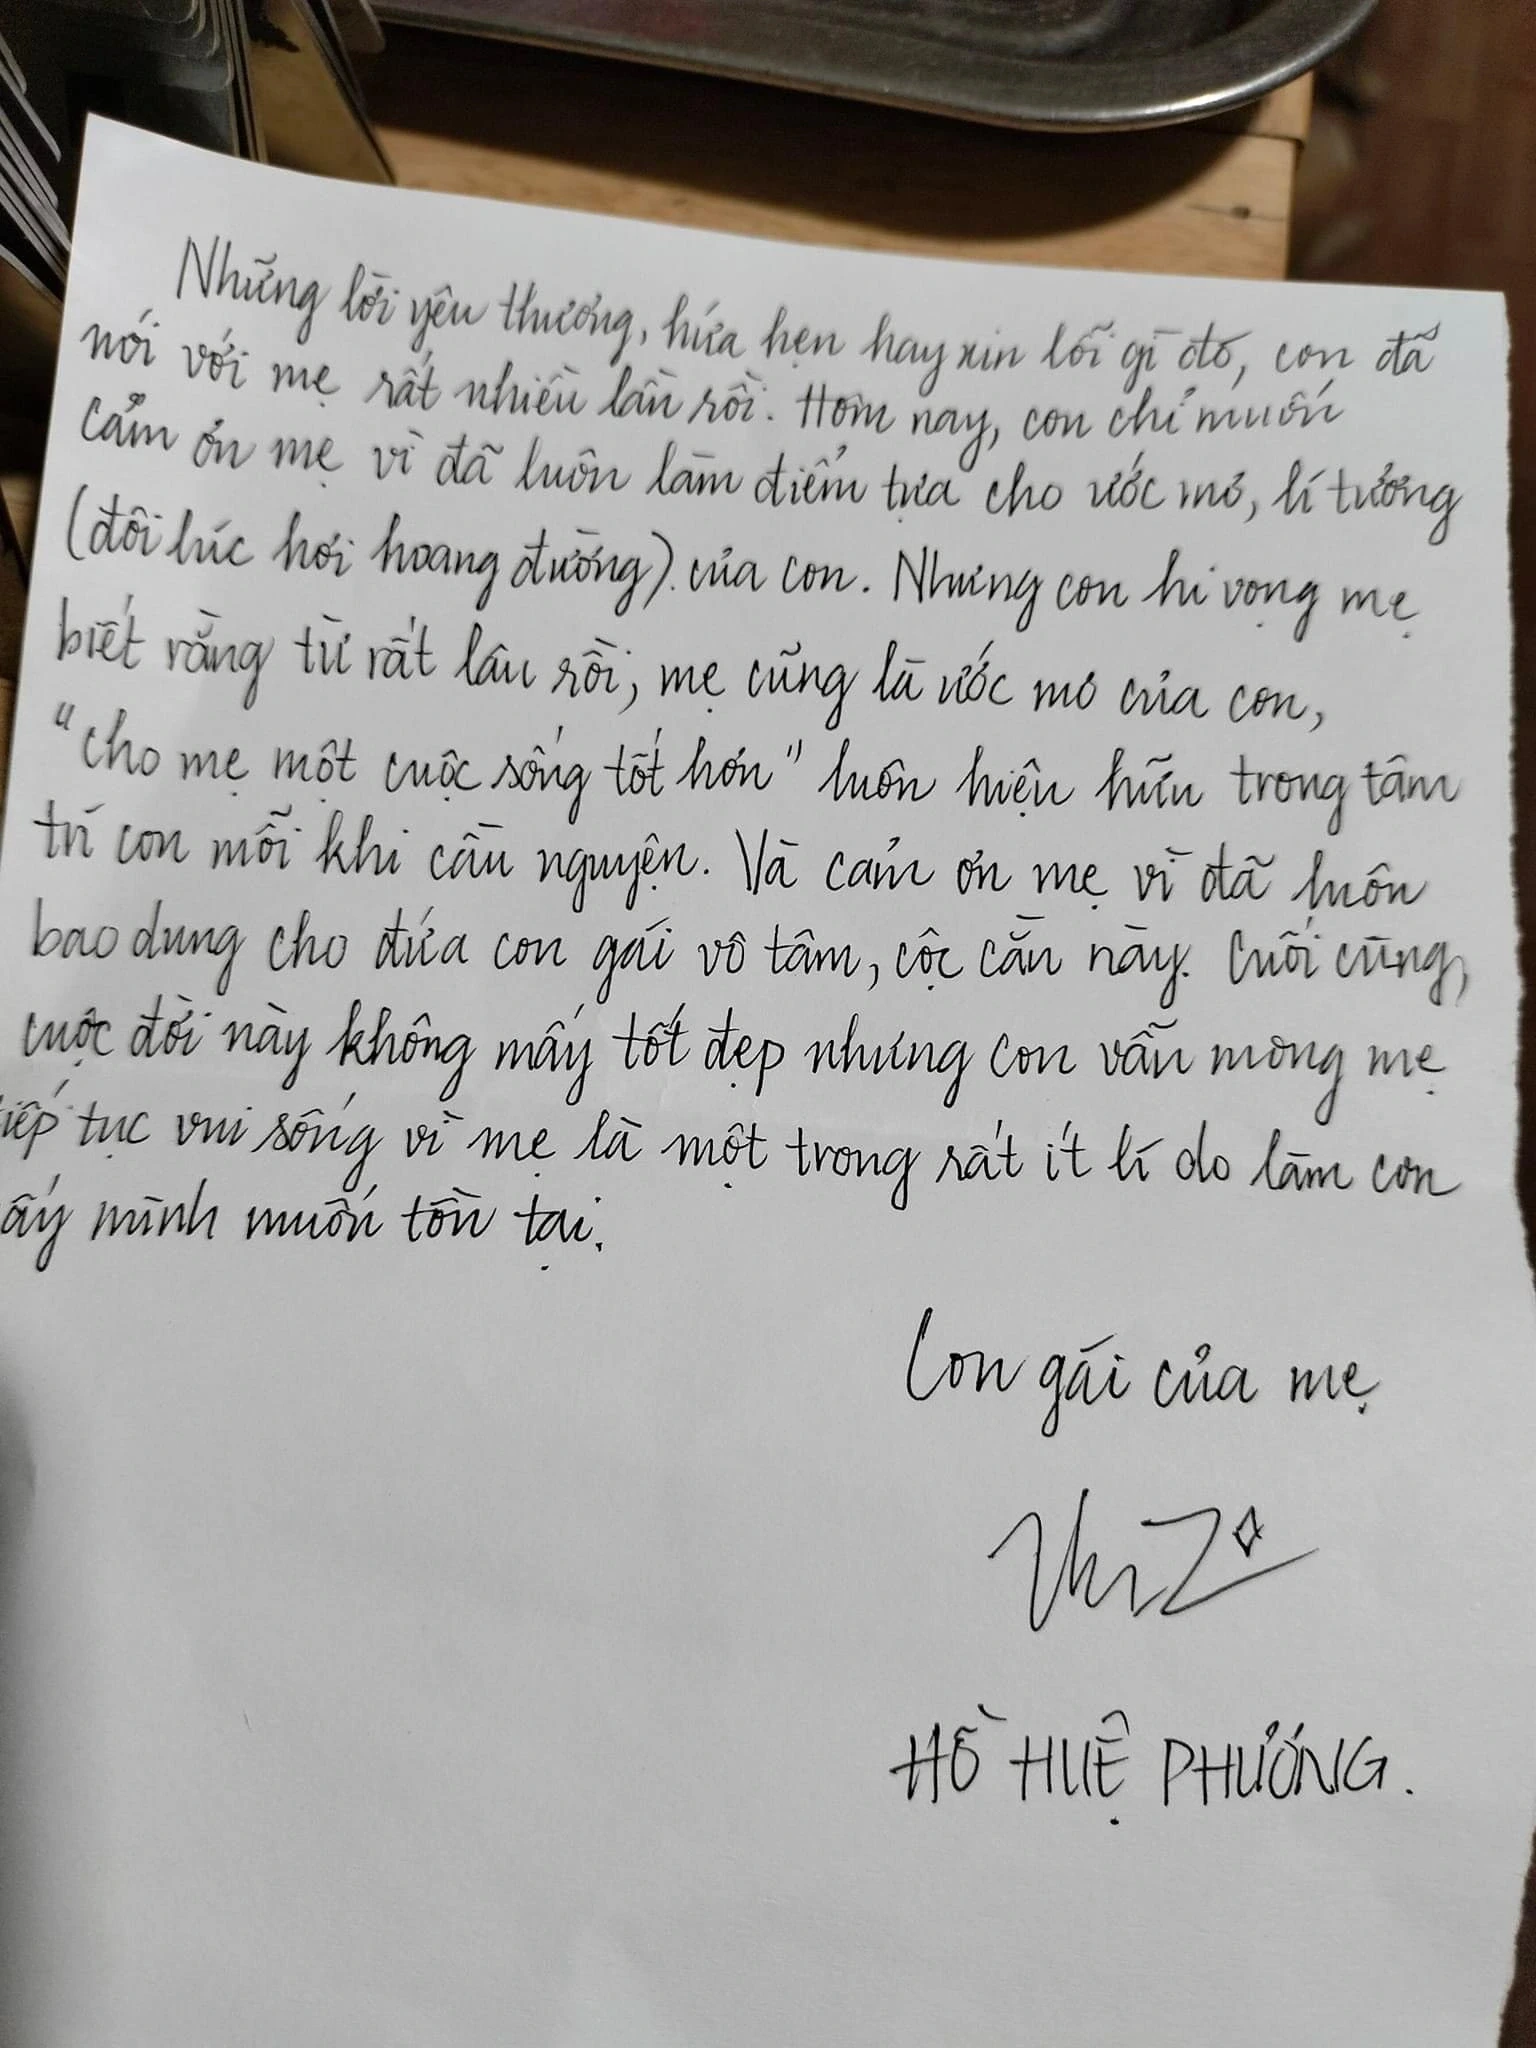 Những lời yêu thương, hứa hẹn hay xin lỗi gì đó, con đã
nói với mẹ rất nhiều lần rồi. Hôm nay, con chỉ muốn
cảm ơn mẹ vì đã luôn làm điểm tựa cho ước mơ, lí tưởng
(đôi lúc hơi hoang đường) của con. Nhưng con hi vọng mẹ
biết rằng từ rất lâu rồi, mẹ cũng là ước mơ của con,
"cho mẹ một cuộc sống tốt hơn" luôn hiện hữu trong tâm
trí con mỗi khi cầu nguyện. Và cảm ơn mẹ vì đã luôn
bao dung cho đứa con gái vô tâm, cộc cằn này. Cuối cùng,
cuộc đời này không mấy tốt đẹp nhưng con vẫn mong mẹ
iếp tục vui sống vì mẹ là một trong rất ít lí do làm con
ấy mình muốn tồn tại.
Con gái của mẹ
HỒ HUỆ PHƯƠNG.